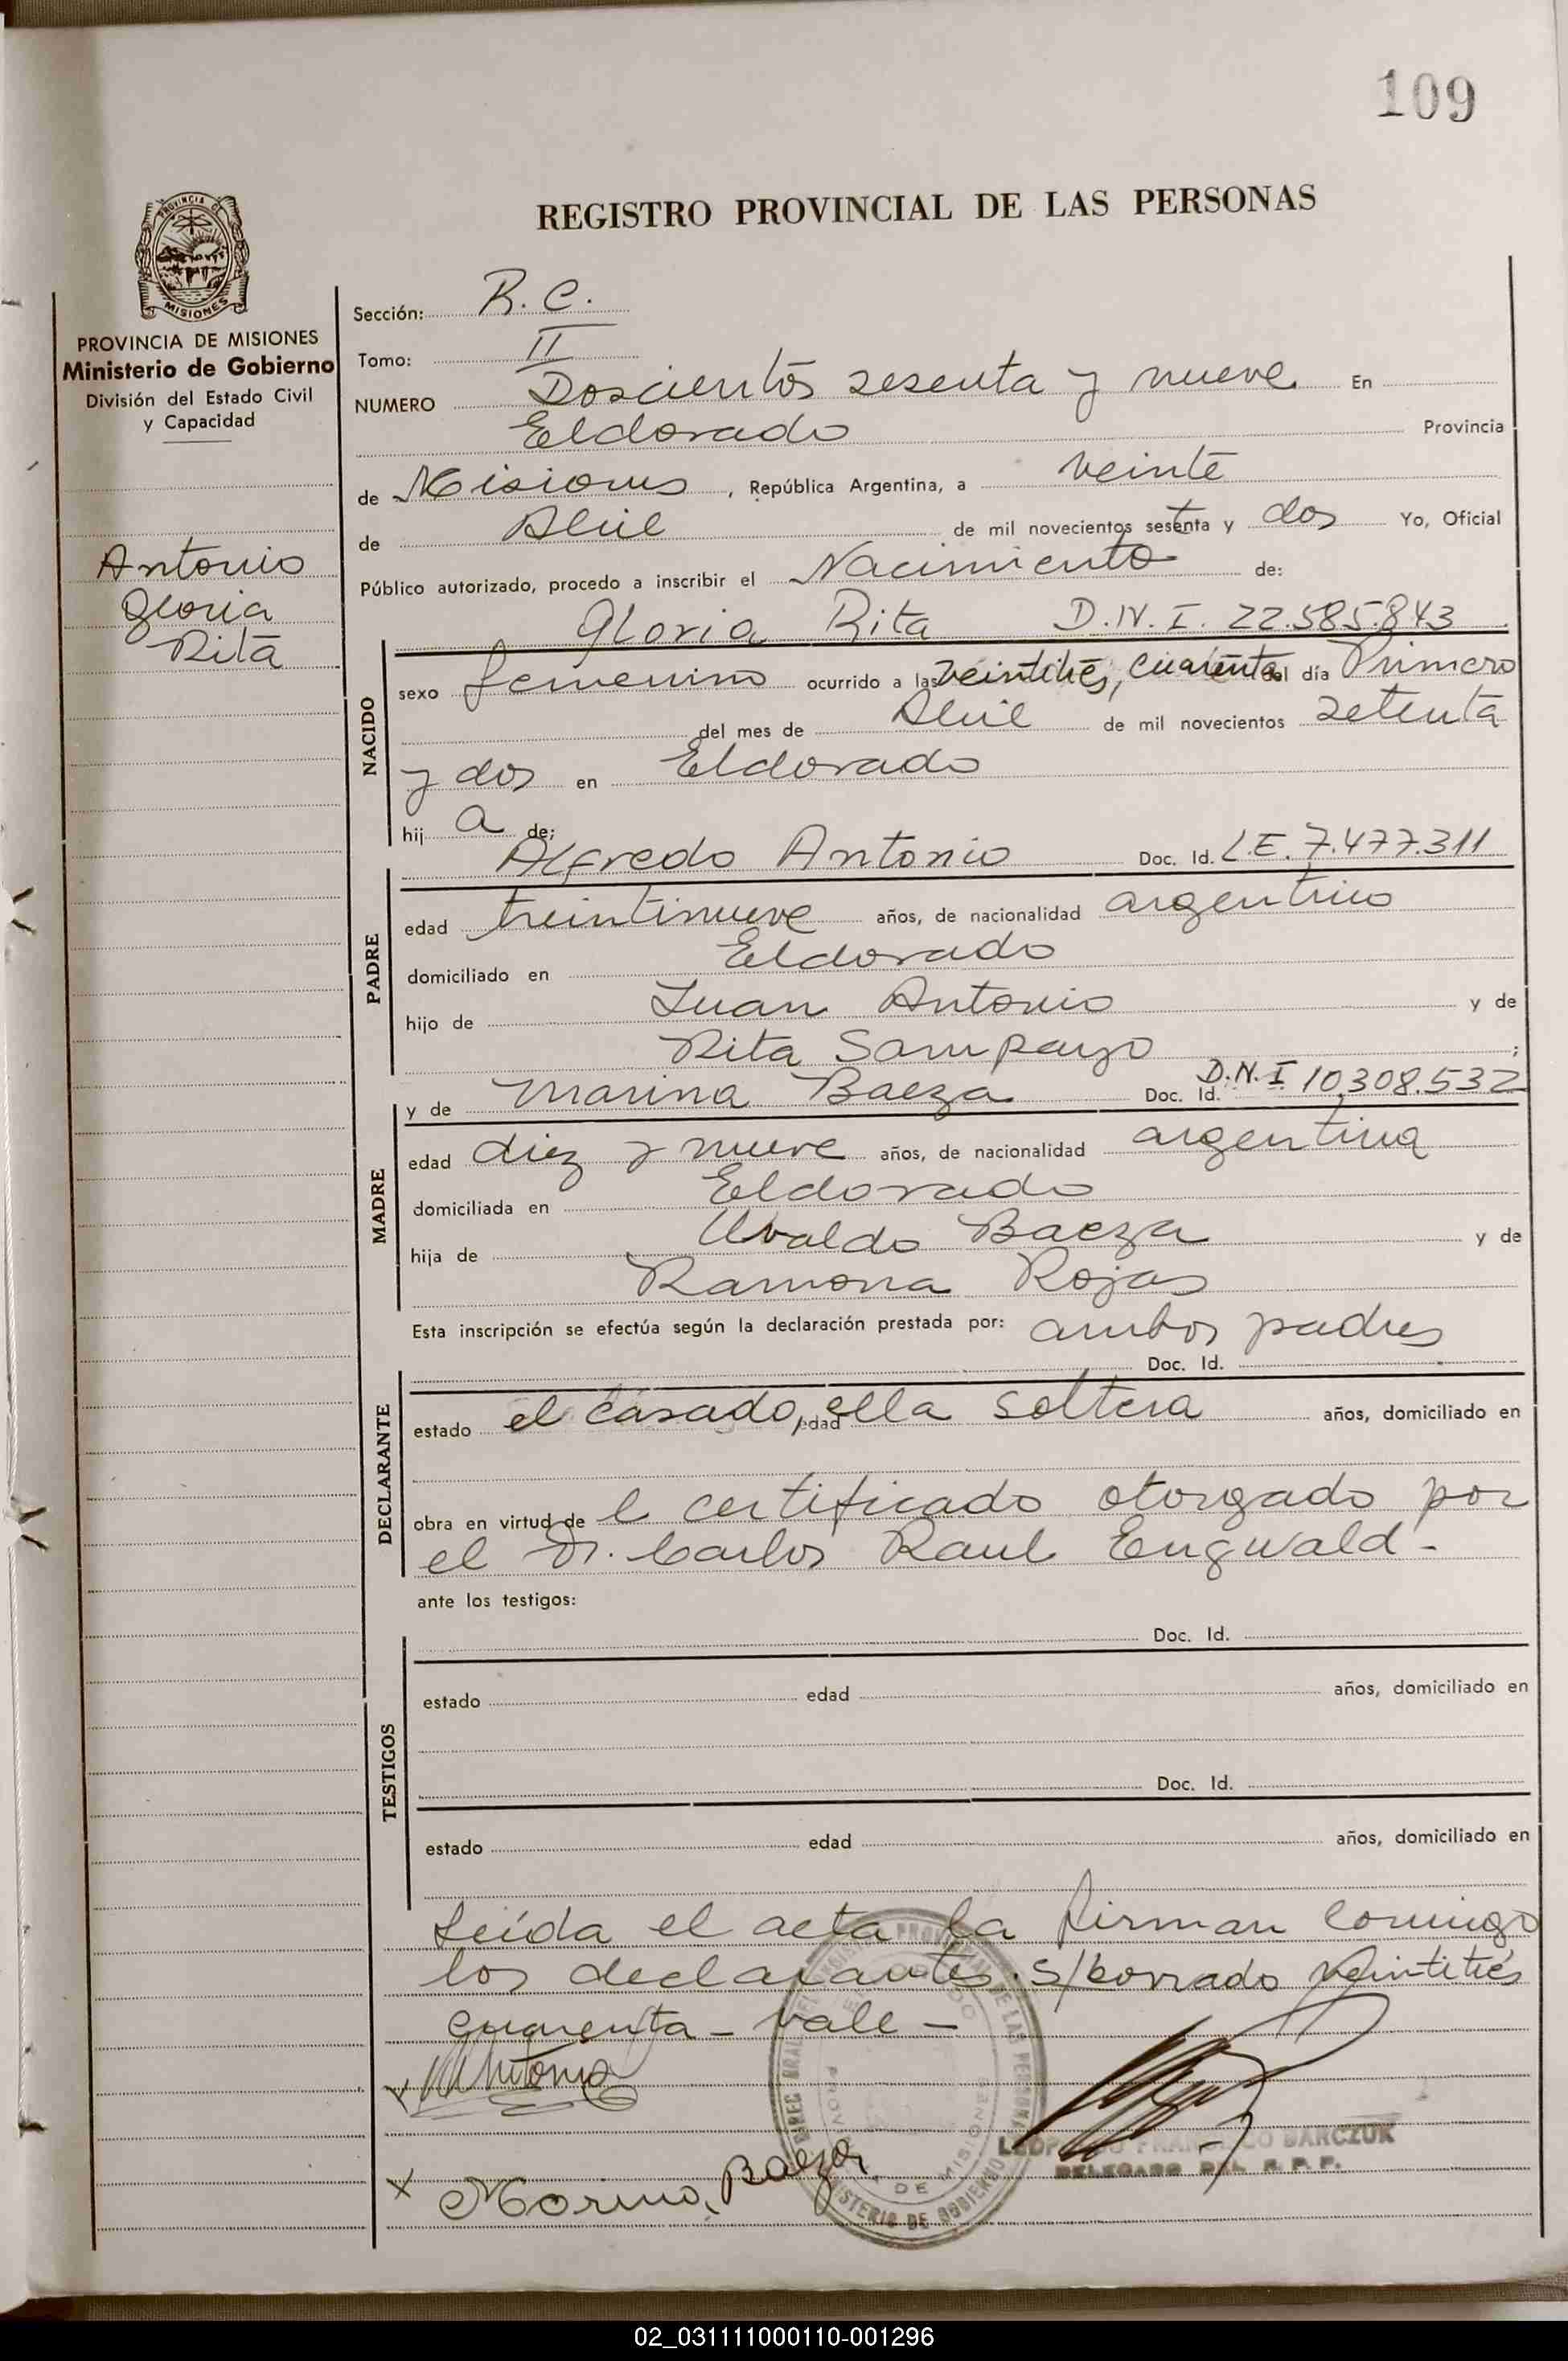 109
REGISTRO PROVINCIAL DE LAS PERSONAS
PROVINCIA DE
MISIONES
PROVINCIA DE MISIONES
Ministerio de Gobierno
División del Estado Civil
y Capacidad
Antonio
Gloria
Rita
Sección: R. C.
Tomo: II
NUMERO Doscientos sesenta y nueve En
Eldorado Provincia
de Misiones, República Argentina, a veinte
de Abril de mil novecientos setenta y dos Yo, Oficial
Público autorizado, procedo a inscribir el Nacimiento de:
Gloria Rita D.N.I. 22.585.843
NACIDO
sexo femenino ocurrido a las veintitrés, cuarenta del día Primero
del mes de Abril de mil novecientos setenta
y dos en Eldorado
hij a de;
Alfredo Antonio Doc. Id. L.E. 7.477.311
PADRE
edad treintinueve años, de nacionalidad argentino
domiciliado en Eldorado
hijo de Juan Antonio y de
Rita Sampayo ;
y de Marina Baeza Doc. Id. D.N.I 10.308.532
MADRE
edad diez y nueve años, de nacionalidad argentina
domiciliada en Eldorado
hija de Uvaldo Baeza y de
Ramona Rojas
Esta inscripción se efectúa según la declaración prestada por: ambos padres
Doc. Id.
DECLARANTE
estado el casado, edad ella soltera años, domiciliado en
obra en virtud de l certificado otorgado por
el Dr. Carlos Raul Engwald -
ante los testigos:
Doc. Id.
TESTIGOS
estado edad años, domiciliado en
Doc. Id.
estado edad años, domiciliado en
Leída el acta la firman conmigo
los declarantes. S/borrado veintitrés
cuarenta - vale -
x Antonio
x Marina Baeza
FRANCISCO BARCZUK
DELEGADO DEL R. P. P.
DE MISIONES
MINISTERIO DE GOBIERNO
02_031111000110-001296